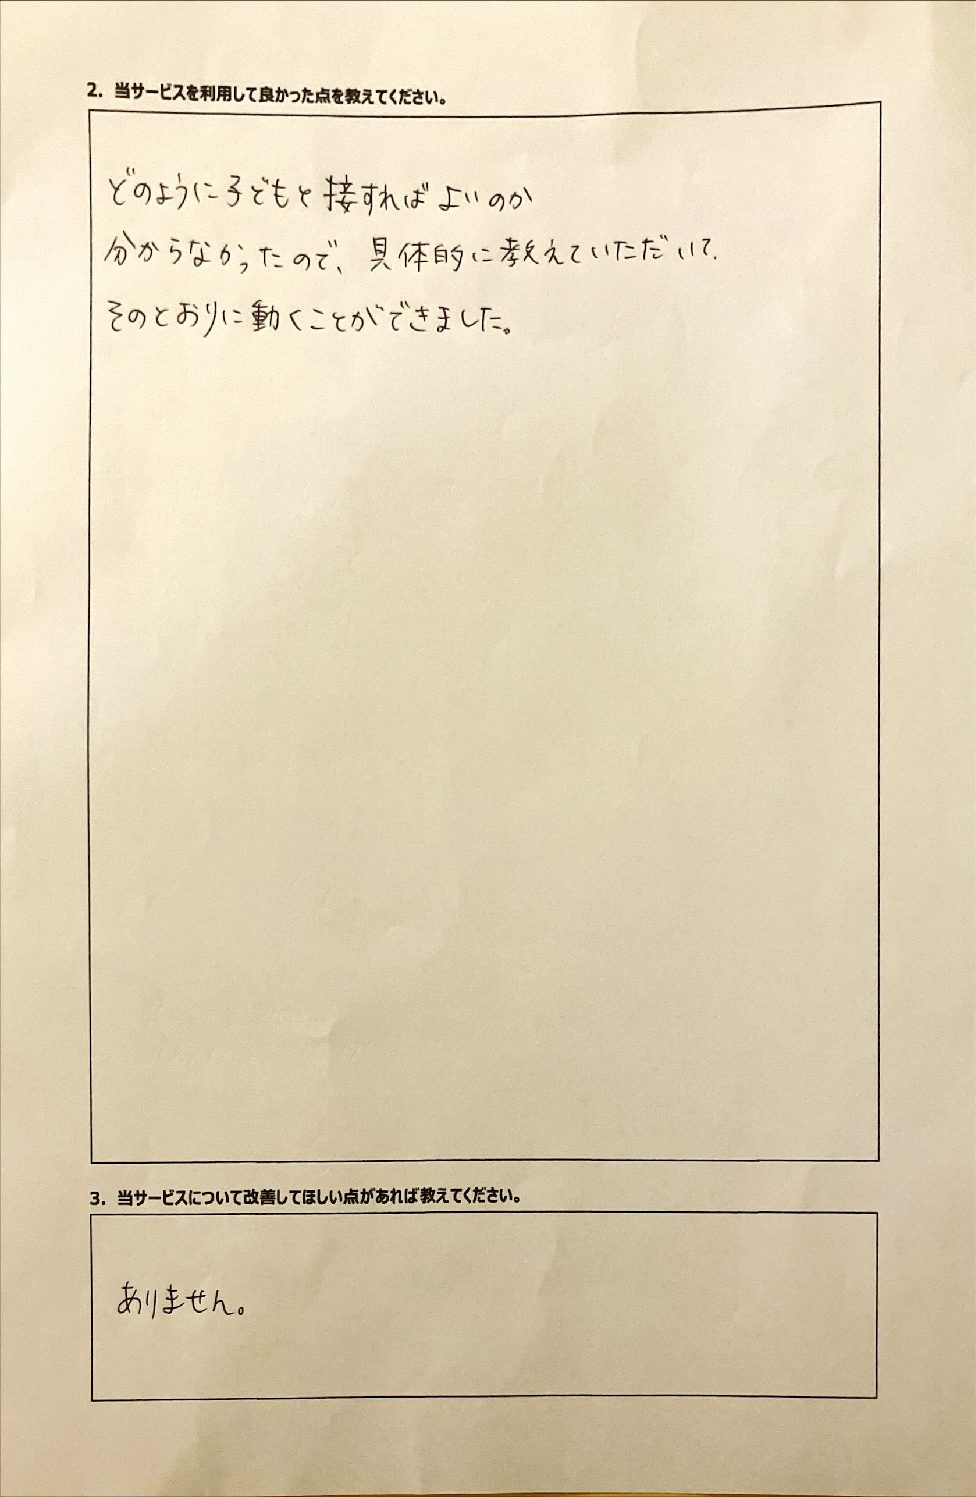 2. 当サービスを利用して良かった点を教えてください。
どのように子どもと接すればよいのか
分からなかったので、具体的に教えていただいて、
そのとおりに動くことができました。
3. 当サービスについて改善してほしい点があれば教えてください。
ありません。